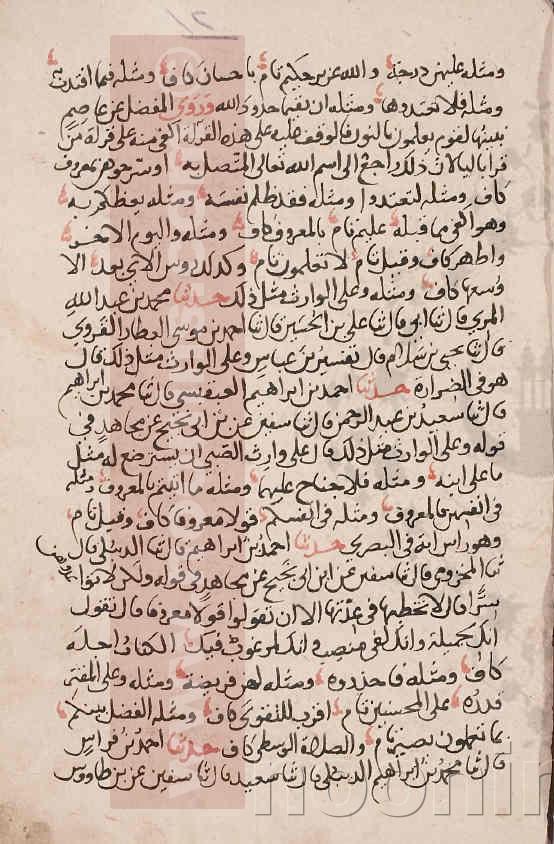 ومثله عليهن درجة والله عزيز حكيم تام باحسان كاف ومثله فيما افتدت به
ومثله فلا تعتدوها ومثله ان يقيما حدود الله وروى المفضل عن عاصم
نبينها لقوم يعلمون بالنون فالوقف عليه على هذه القراة اكفى منه على قراة من
قرا بالياء لان ذلك راجع الى اسم الله تعالى المتصل به او سرحوهن بمعروف
كاف ومثله لتعتدوا ومثله فقد ظلم نفسه ومثله يعظكم به
وهو اكفى مما قبله عليم تام بالمعروف كاف ومثله واليوم الاخر
واطهر كاف وقيل تام لا تعلمون تام وكذلك روس الاي بعد الا
وسعها كاف ومثله وعلى الوارث مثل ذلك حدثنا محمد بن عبد الله
المري قال ثنا ابي قال ثنا علي بن الحسين قال ثنا احمد بن موسى العطار القروي
قال ثنا يحيى بن سلام قال تفسير بن عباس وعلى الوارث مثل ذلك قال
هو في الضرار حدثنا احمد بن ابراهيم العبقسي قال ثنا محمد بن ابراهيم
قال ثنا سعيد بن عبد الرحمن قال ثنا سفين عن بن ابي نجيح عن مجاهد في
قوله وعلى الوارث مثل ذلك قال على وارث الصبي ان يسترضع له مثل
ما على ابيه ومثله فلا جناح عليهما ومثله ما اتيتم بالمعروف ومثله
في انفسهن بالمعروف ومثله في انفسكم قولا معروفا كاف وقيل تام
وهو راس اية في البصري حدثنا احمد بن ابراهيم قال ثنا الديبلي قال
ثنا المخزومي قال ثنا سفين عن ابن ابي نجيح عن مجاهد في قوله ولكن لا تواعدوهن
سرا قال لا تخطبها في عدتها الا ان تقولوا قولا معروفا قال تقول
انك لجميلة وانك لفي منصب وانك لمرغوب فيك الكتاب اجله
كاف ومثله فاحذروه ومثله لهن فريضة ومثله وعلى المقتر
قدره على المحسنين تام اقرب للتقوى كاف ومثله الفضل بينكم
بما تعملون بصير تام والصلاة الوسطى كاف حدثنا احمد بن فراس
قال ثنا محمد بن ابراهيم الديبلي قال ثنا سعيد قال ثنا سفين عن بن طاووس